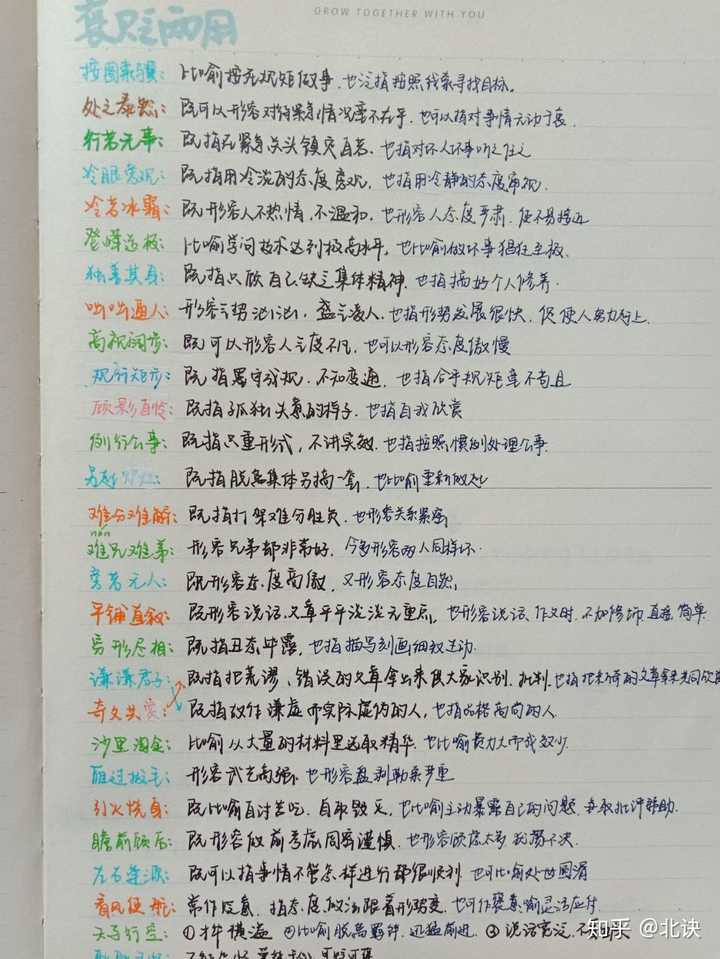 GROW TOGETHER WITH YOU
褒贬两用
按图索骥：比喻按死规矩做事，也泛指按照线索寻找目标。
处之泰然：既可以形容对待紧急情况毫不在乎，也可以指对事情无动于衷
行若无事：既指在紧急关头镇定自若，也指对坏人坏事听之任之
冷眼旁观：既指用冷淡的态度旁观，也指用冷静的态度审视。
冷若冰霜：既形容人不热情，不温和，也形容人态度严肃，使不易接近
登峰造极：比喻学问技术达到极高水平，也比喻做坏事猖狂至极。
独善其身：既指只顾自己缺乏集体精神，也指搞好个人修养。
咄咄逼人：形容气势汹汹，盛气凌人，也指形势发展很快，促使人努力向上
高视阔步：既可以形容人气度不凡，也可以形容态度傲慢
规行矩步：既指墨守成规，不知变通，也指合乎规矩毫不苟且
顾影自怜：既指孤独失意的样子，也指自我欣赏
例行公事：既指只重形式，不讲实效，也指按照惯例处理公事
另起炉灶：既指脱离集体另搞一套，也比喻重新做起
难分难解：既指打架难分胜负，也形容关系紧密
nán
难兄难弟：形容兄弟都非常好，今多形容两人同样坏。
旁若无人：既形容态度高傲，又形容态度自然
平铺直叙：既形容说话文章平平淡淡无重点，也形容说话、作文时，不加修饰，直接，简单
穷形尽相：既指丑态毕露，也指描写刻画细致生动
谦谦君子：既指把荒谬、错误的文章拿出来供大家识别、批判，也指把新奇的文章拿来共同欣赏
奇文共赏：既指故作谦虚而实际虚伪的人，也指品格高尚的人
沙里淘金：比喻从大量的材料里选取精华，也比喻费力大而成效少
雁过拔毛：形容武艺高强，也形容盘剥勒索严重
引火烧身：既比喻自讨苦吃，自取毁灭，也比喻主动暴露自己的问题，争取批评帮助
瞻前顾后：既形容做前考虑周密谨慎，也形容顾虑太多，犹豫不决
左右逢源：既可以指事情不管怎样进行都很顺利，也可比喻处世圆滑
看风使舵：常作贬意，指态度做法跟着形势变，也可作褒意，喻灵活应付
天马行空：①才华横溢 ②比喻脱离羁绊，迅猛前进 ③说话宽泛，不
知乎 @北诀